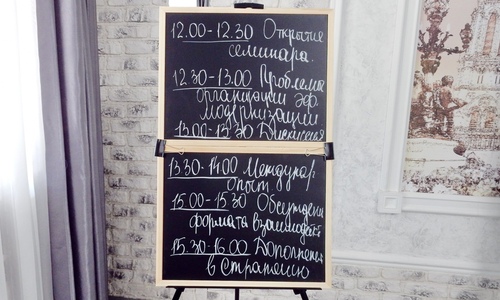 12.00-12.30 Открытие
семинара.
12.30-13.00 Проблема
организации эф.
модернизации
13.00-13.30 Дискуссия
13.30-14.00 Междунар
опыт
15.00-15.30 Обсужден
формата взаимодей
15.30-16.00 Дополнен
в Стратегию